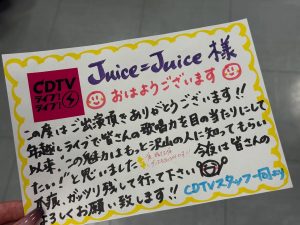 CDTV
ライブ!
ライブ!
Juice=Juice 様
おはようございます
この度はご出演頂きありがとうございます!!
年越しライブで皆さんの歌唱力を目の当たりにして
以来、"この魅力はもっと沢山の人に知ってもらい
たい!"と思いました。今夜は皆さんの
本気、ガッツリ残して行って下さい
よろしくお願い致します!!
CDTVスタッフ一同より